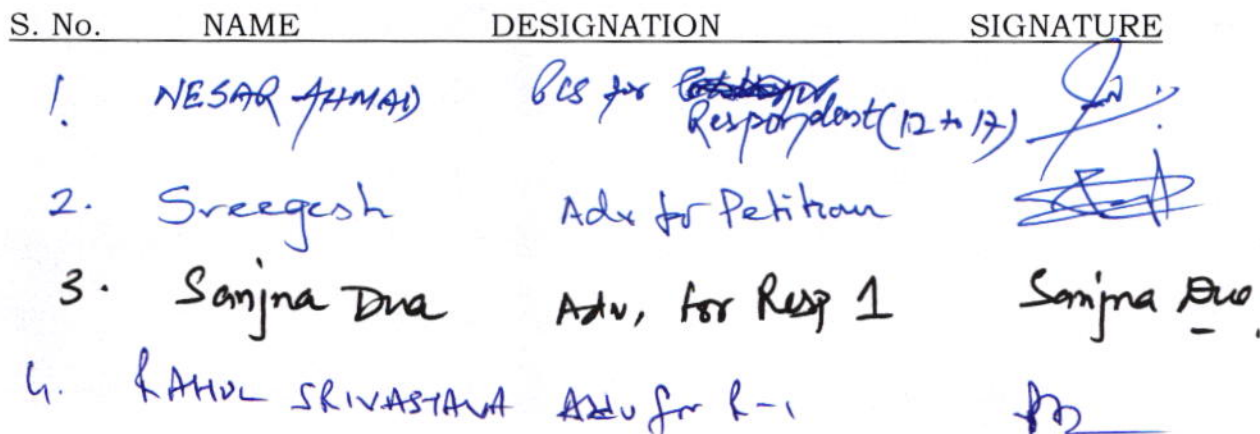 S. No. NAME DESIGNATION SIGNATURE
1. NESAR AHMAD PCS for
Respondent (12 to 17)
2. Sreegesh Adv for Petition
3. Sanjna Dua Adv, for Resp 1 Sanjna Dua
4. RAHUL SRIVASTAVA Adv for R-1